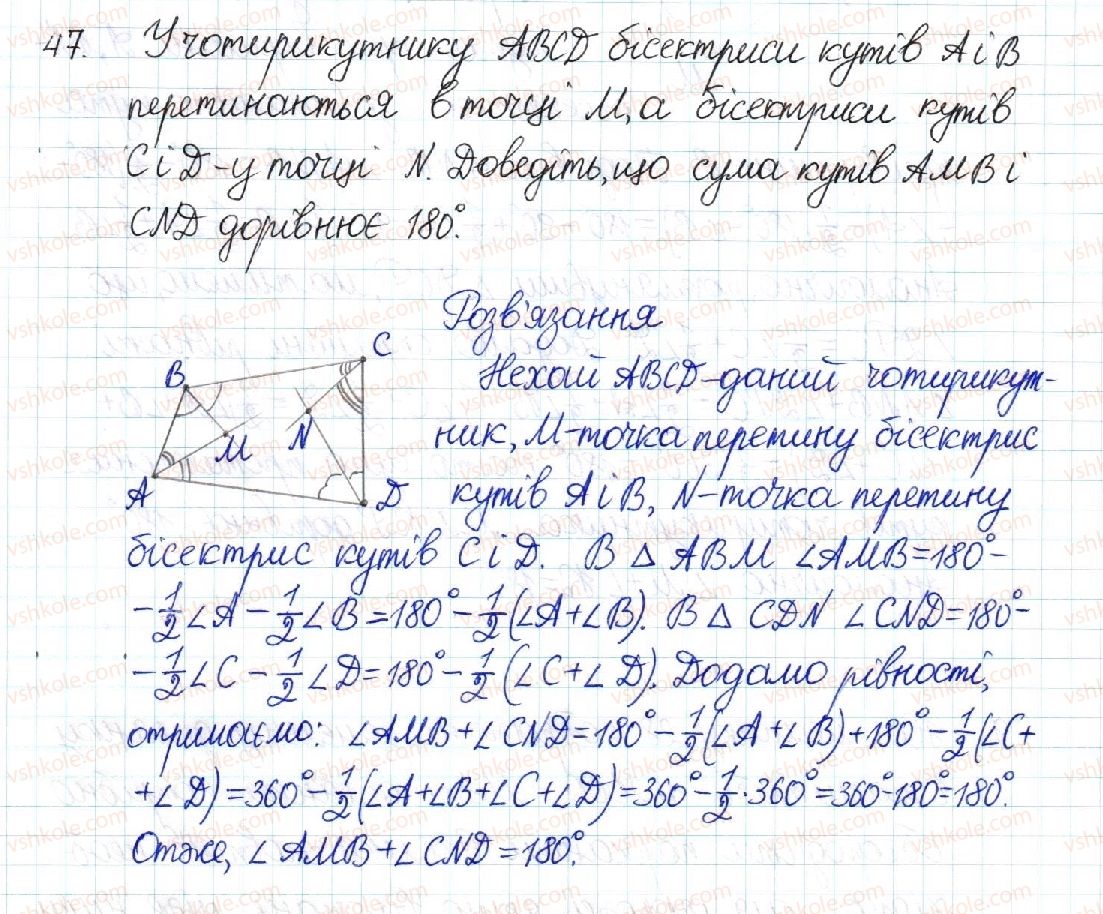 47. У чотирикутнику ABCD бісектриси кутів A і B
перетинаються в точці M, а бісектриси кутів
C і D - у точці N. Доведіть, що сума кутів AMB і
CND дорівнює 180°.
Розв'язання
B
C
M
N
A
D
Нехай ABCD - даний чотирикут-
ник, M - точка перетину бісектрис
кутів A і B, N - точка перетину
бісектрис кутів C і D. В △ ABM ∠AMB = 180° -
- 1/2 ∠A - 1/2 ∠B = 180° - 1/2 (∠A + ∠B). В △ CDN ∠CND = 180° -
- 1/2 ∠C - 1/2 ∠D = 180° - 1/2 (∠C + ∠D). Додамо рівності,
отримаємо: ∠AMB + ∠CND = 180° - 1/2 (∠A + ∠B) + 180° - 1/2 (∠C +
+ ∠D) = 360° - 1/2 (∠A + ∠B + ∠C + ∠D) = 360° - 1/2 · 360° = 360° - 180° = 180°.
Отже, ∠AMB + ∠CND = 180°.
vshkole.com